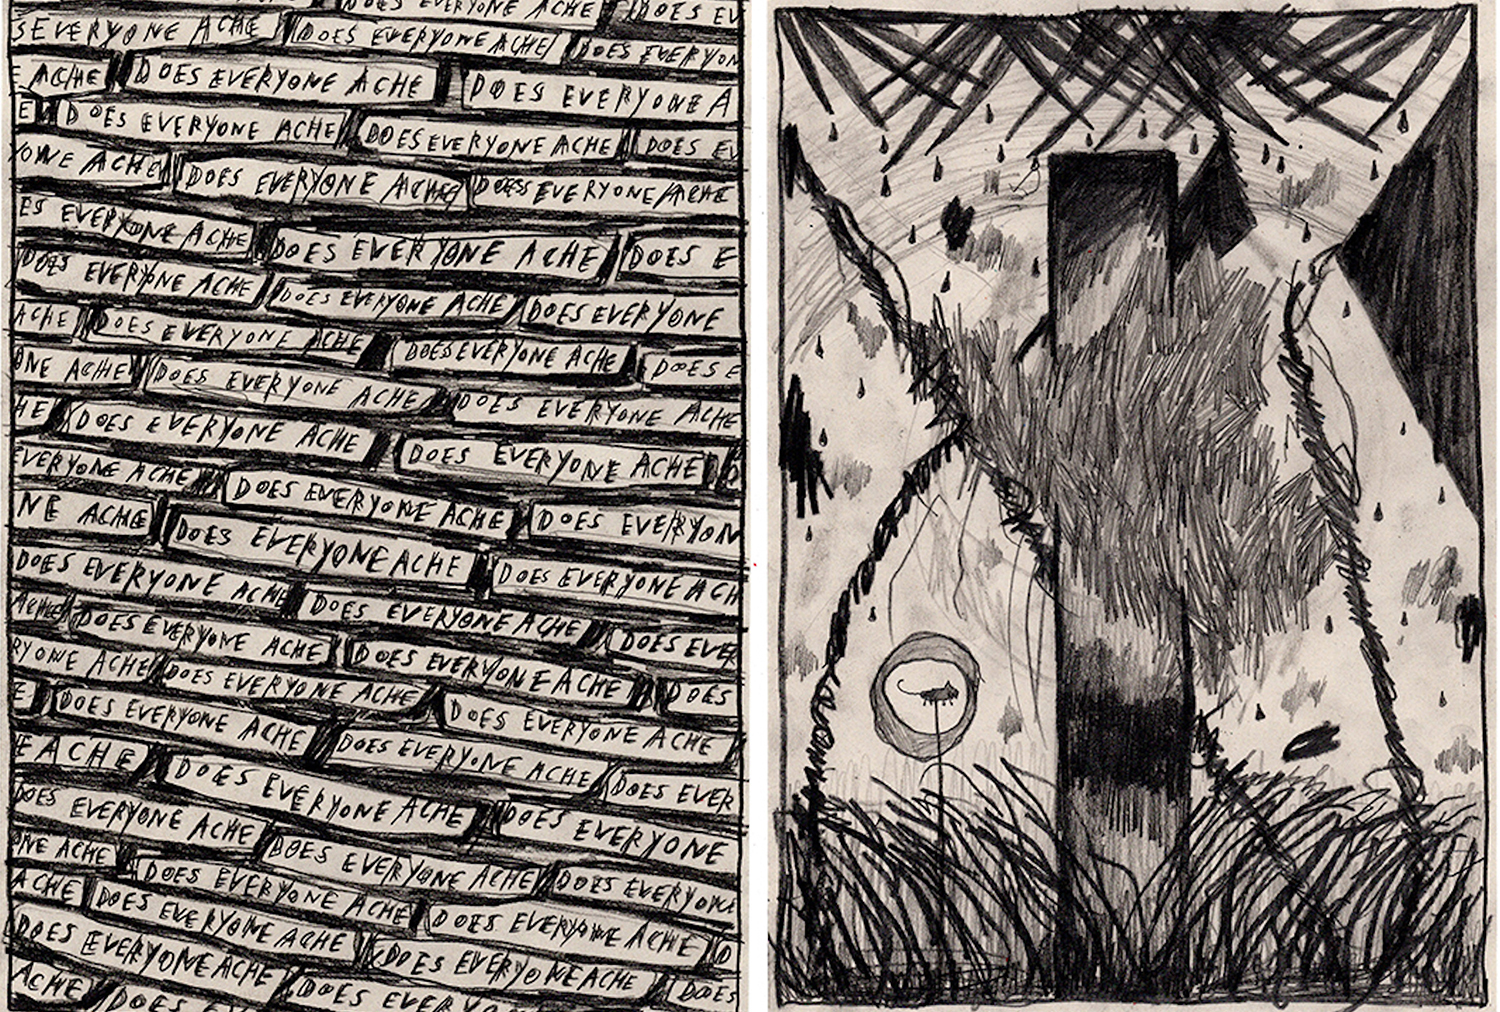 DOES EVERYONE ACHE DOES EV
S EVERYONE ACHE DOES EVERYONE ACHE DOES EVERYON
E ACHE DOES EVERYONE ACHE DOES EVERYONE A
E DOES EVERYONE ACHE DOES EVERYONE ACHE DOES EV
YONE ACHE DOES EVERYONE ACHE DOES EVERYONE ACHE
ES EVERYONE ACHE DOES EVERYONE ACHE DOES E
DOES EVERYONE ACHE DOES EVERYONE ACHE DOES EVERYONE
ACHE DOES EVERYONE ACHE DOES EVERYONE ACHE DOES E
ONE ACHE DOES EVERYONE ACHE DOES EVERYONE ACHE
HE DOES EVERYONE ACHE DOES EVERYONE ACHE D
EVERYONE ACHE DOES EVERYONE ACHE DOES EVERYON
NE ACHE DOES EVERYONE ACHE DOES EVERYONE ACH
DOES EVERYONE ACHE DOES EVERYONE ACHE DOES EVER
ACHE DOES EVERYONE ACHE DOES EVERYONE ACHE DOES
RYONE ACHE DOES EVERYONE ACHE DOES EVERYONE ACHE
E DOES EVERYONE ACHE DOES EVERYONE ACHE DOES EVER
E ACHE DOES EVERYONE ACHE DOES EVERYONE
DOES EVERYONE ACHE DOES EVERYONE ACHE DOES EVERYONE
ONE ACHE DOES EVERYONE ACHE DOES EVERYONE ACHE D
ACHE DOES EVERYONE ACHE DOES EVERYONE ACHE DOES
DOES EVERYONE ACHE DOES EVERYONE
ACHE DOES